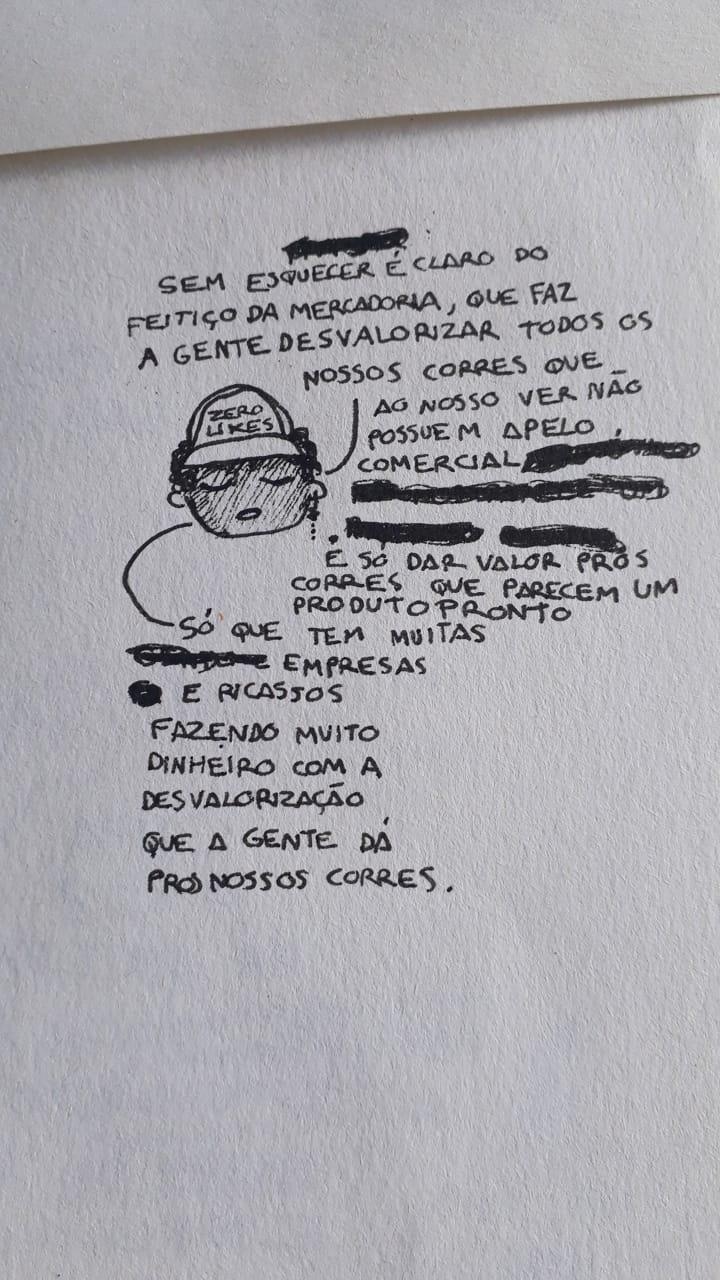 SEM ESQUECER É CLARO DO
FEITIÇO DA MERCADORIA, QUE FAZ
A GENTE DESVALORIZAR TODOS OS
NOSSOS CORRES QUE
AO NOSSO VER NÃO
POSSUEM APELO
COMERCIAL
ZERO
LIKES
E SÓ DAR VALOR PROS
CORRES QUE PARECEM UM
PRODUTO PRONTO
SÓ QUE TEM MUITAS
EMPRESAS
E RICASSOS
FAZENDO MUITO
DINHEIRO COM A
DESVALORIZAÇÃO
QUE A GENTE DÁ
PROS NOSSOS CORRES.